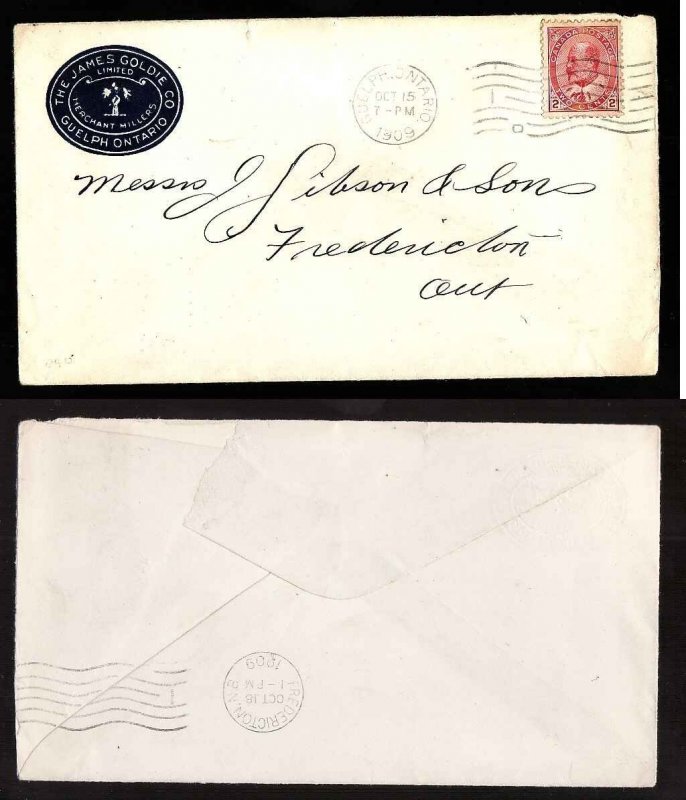 THE JAMES GOLDIE CO
LIMITED
MERCHANT MILLERS
GUELPH ONTARIO
GUELPH, ONTARIO
OCT 15
7-PM
1909
CANADA POSTAGE
2 TWO CENTS 2
Messrs J. Gibson & Sons
Fredericton
Ont
FREDERICTON, N.B.
OCT 18
1-PM
1909